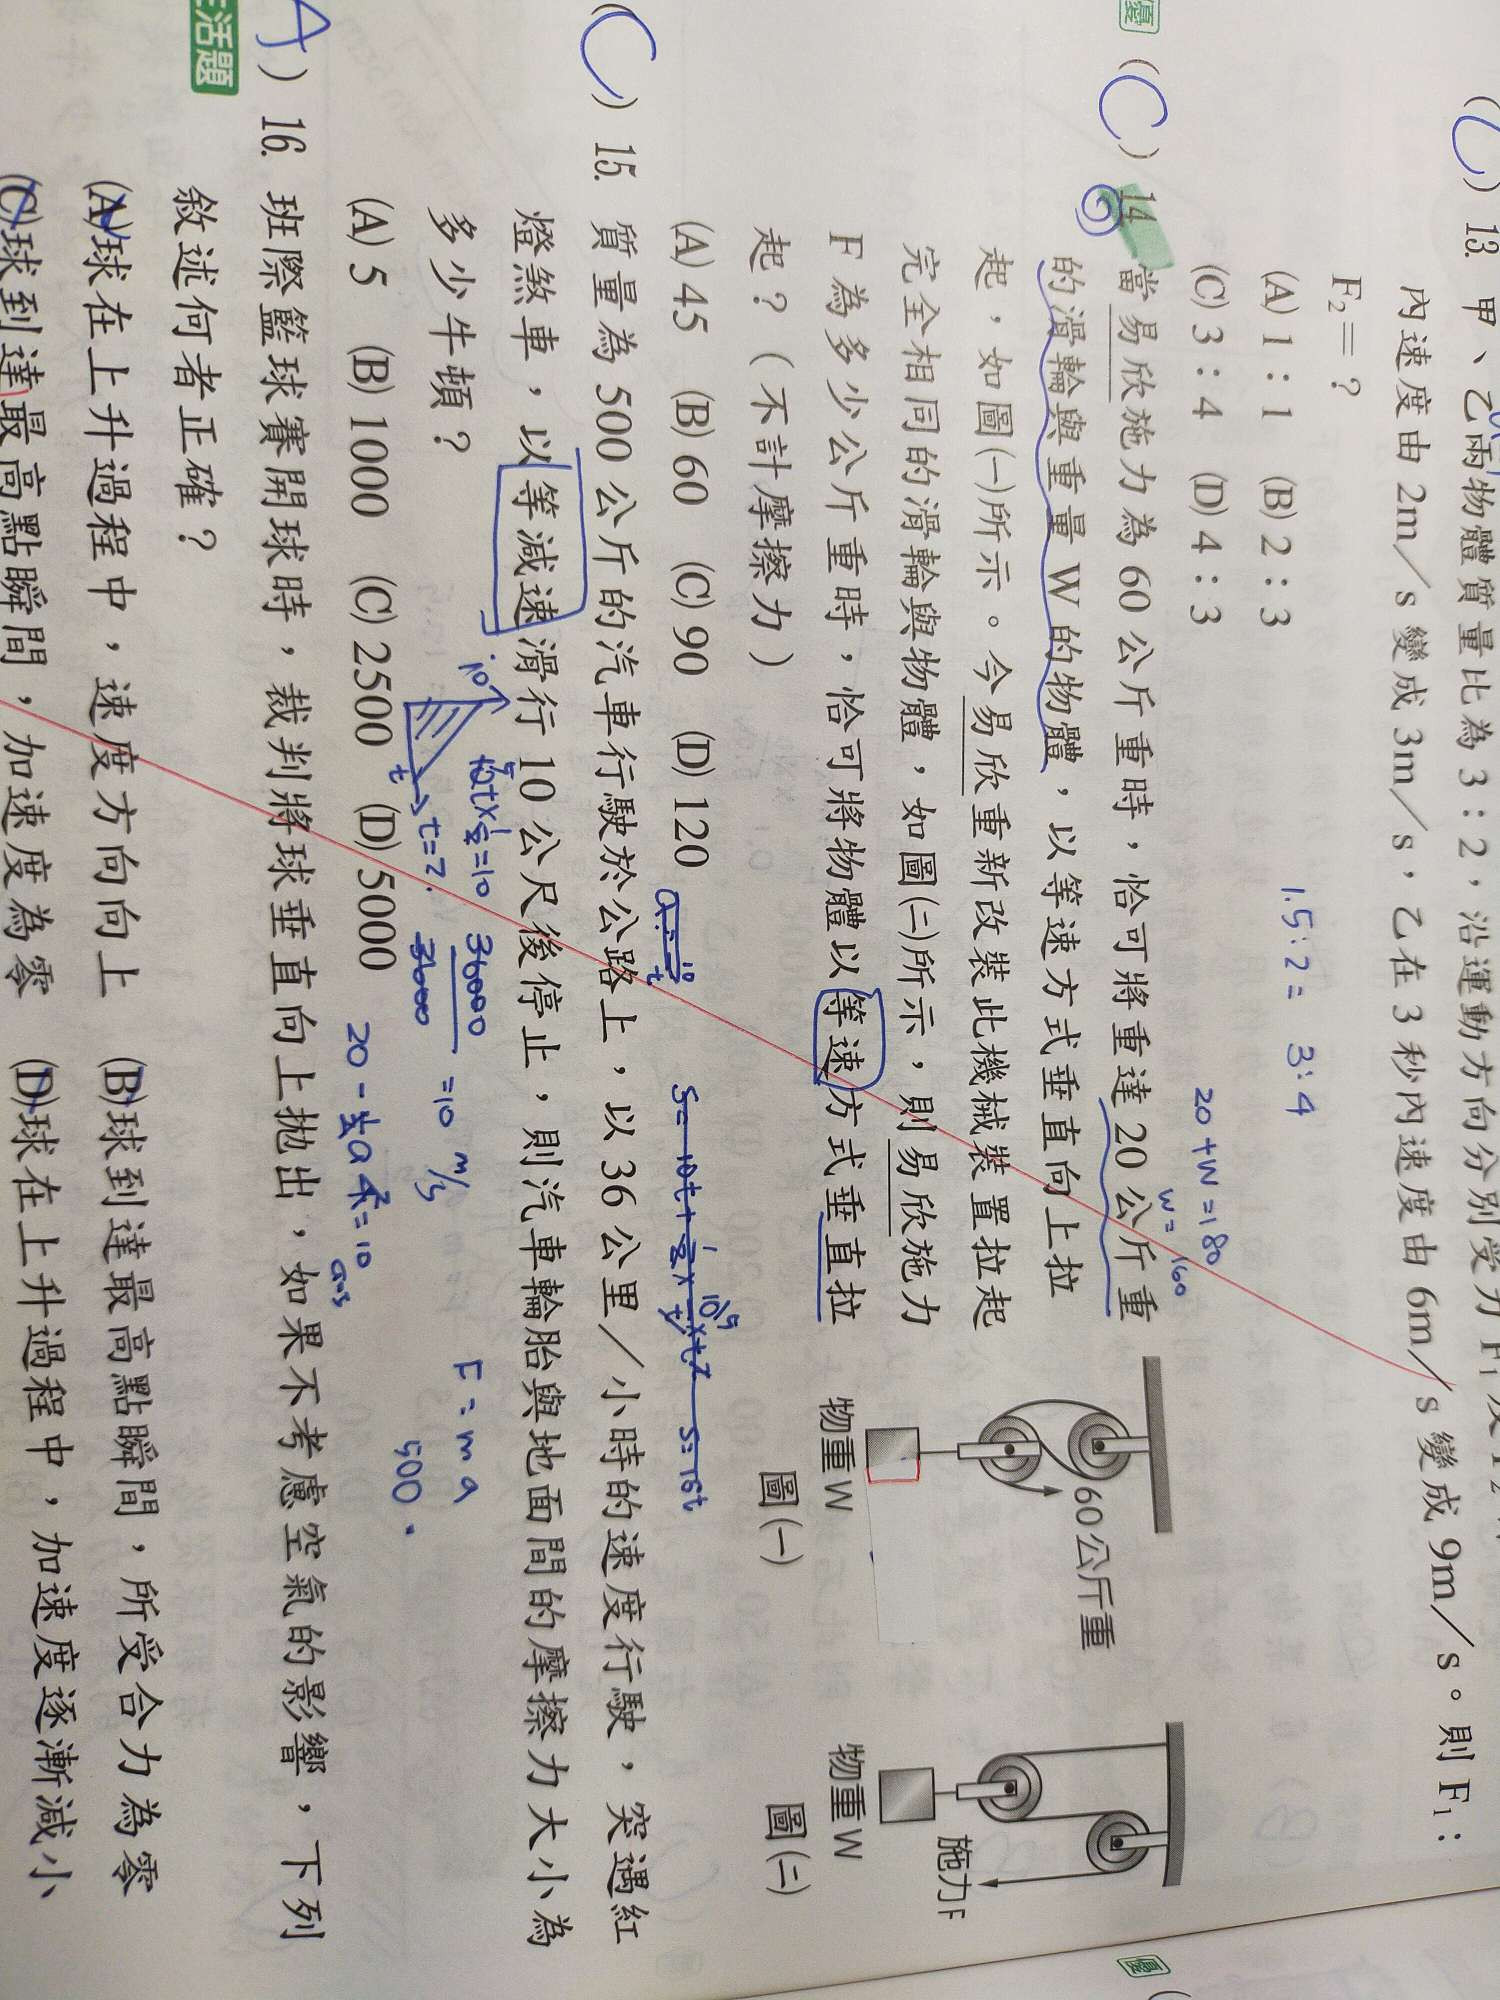 (C) 13. 甲、乙兩物體質量比為 3：2，沿運動方向分別受力 F₁
內速度由 2m／s 變成 3m／s，乙在 3 秒內速度由 6m／s 變成 9m／s。則 F₁：
F₂＝？
(A) 1：1 (B) 2：3
(C) 3：4 (D) 4：3
1.5：2＝ 3：4
優
(C) 14 當易欣施力為 60 公斤重時，恰可將重達 20 公斤重
的滑輪與重量 W 的物體，以等速方式垂直向上拉
起，如圖(一)所示。今易欣重新改裝此機械裝置拉起
完全相同的滑輪與物體，如圖(二)所示，則易欣施力
F 為多少公斤重時，恰可將物體以等速方式垂直拉
起？（不計摩擦力）
(A) 45 (B) 60 (C) 90 (D) 120
20＋W＝180
W＝160
60公斤重
物重W
圖(一)
施力F
物重W
圖(二)
(C) 15. 質量為 500 公斤的汽車行駛於公路上，以 36 公里／小時的速度行駛，突遇紅
燈煞車，以等減速滑行 10 公尺後停止，則汽車輪胎與地面間的摩擦力大小為
多少牛頓？
(A) 5 (B) 1000 (C) 2500 (D) 5000
10
t
t＝2.
36000
36000
＝10 m/s
F＝ma
500.
A) 16. 班際籃球賽開球時，裁判將球垂直向上拋出，如果不考慮空氣的影響，下列
敘述何者正確？
(A)球在上升過程中，速度方向向上 (B)球到達最高點瞬間，所受合力為零
(C)球到達最高點瞬間，加速度為零 (D)球在上升過程中，加速度逐漸減小
活題
優